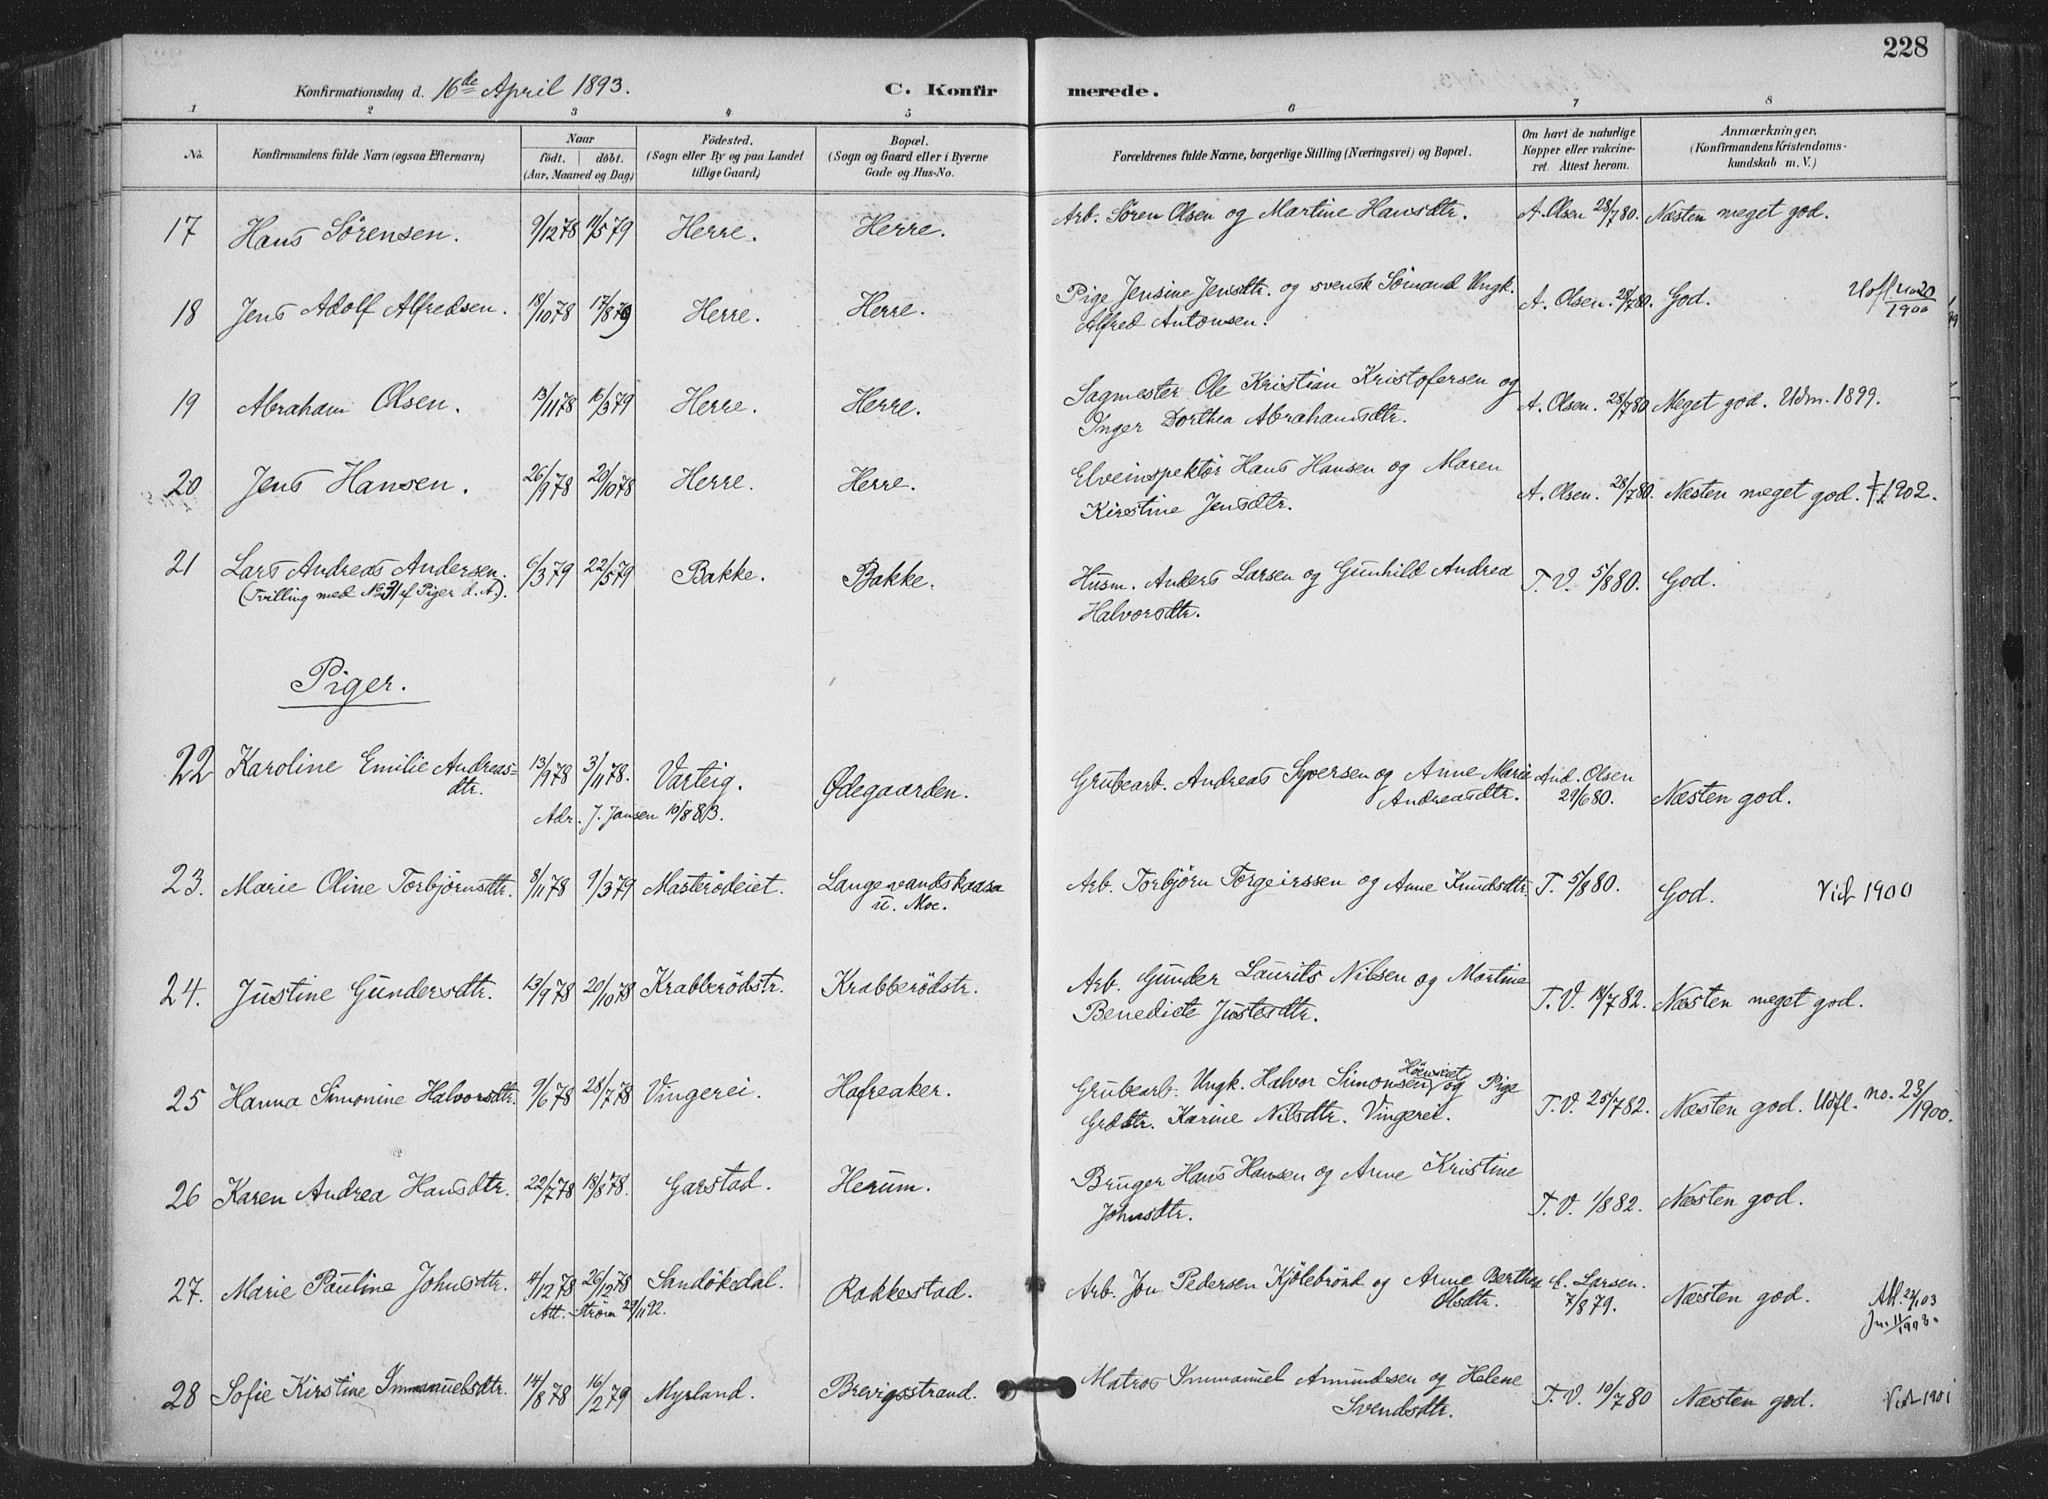 228
Konfirmationsdag d. 16de April 1893. C. Konfirmerede.
1 2 3 4 5 6 7 8
No. Konfirmandens fulde Navn (ogsaa Efternavn) Naar födt. döbt. (Aar, Maaned og Dag) Födested. (Sogn eller By og paa Landet tillige Gaard) Bopæl. (Sogn og Gaard eller i Byerne Gade og Hus-No. Forældrenes fulde Navne, borgerlige Stilling (Næringsvei) og Bopæl. Om havt de naturlige Kopper eller vakcineret. Attest herom. Anmærkninger. (Konfirmandens Kristendomskundskab m. V.)
17 Hans Sörensen. 9/12 78 11/5 79 Herre. Herre. Arb. Sören Olsen og Martine Hansdtr. A. Olsen 28/7 80. Næsten meget god.
18 Jens Adolf Alfredsen. 18/10 78 17/8 79 Herre. Herre. Pige Jensine Jensdtr. og svensk Sömand Ungk.
Alfred Antonsen. A. Olsen. 28/7 80. God. Udfl no 20/1900
19 Abraham Olsen. 13/11 78 16/3 79 Herre. Herre. Sagmester Ole Kristian Kristofersen og
Inger Dorthea Abrahamsdtr. A. Olsen. 28/7 80 Meget god. Udm. 1899.
20 Jens Hansen. 26/9 78 20/10 78 Herre. Herre. Elveinspektör Hans Hansen og Maren
Kirstine Jensdtr. A. Olsen. 28/7 80. Næsten meget god. † 1902.
21 Lars Andreas Andersen. 6/3 79 22/5 79 Bakke. Bakke. Husm. Anders Larsen og Gunhild Andrea
(Tvilling med No 31 af Piger d. A). Halvorsdtr. T. V. 5/8 80. God.
Piger.
22 Karoline Emilie Andreas=
dtr. 13/9 78 3/11 78. Varteig. Ödegaarden. Grubearb. Andreas Syversen og Anne Marie
Andreasdtr. And. Olsen 29/6 80. Næsten god.
Adr. J. Jansen 10/8 83.
23. Marie Oline Torbjörnsdtr. 8/11 78 9/3 79 Masterödeiet. Langevandskaasa
u. Moe. Arb. Torbjörn Torgeirssen og Anne Knudsdtr. T. 5/8 80. God. Vid 1900
24. Justine Gundersdtr. 13/9 78 20/10 78 Krabberödstr. Krabberödstr. Arb. Gunder Laurits Nilsen og Martine
Benedicte Justesdtr. T. V. 18/7 82. Næsten meget god.
25 Hanna Simonine Halvorsdtr. 9/6 78 28/7 78 Vingerei. Hafreaker. Grubearb. Ungk. Halvor Simonsen og Pige
Grdtr. Karine Nilsdtr. Vingerei. T. V. 25/7 82. Næsten god. Udfl. no. 23/1900.
26 Karen Andrea Hansdtr. 22/7 78 18/8 78. Garstad. Herum. Bruger Hans Hansen og Anne Kristine
Johnsdtr. T. V. 1/8 82. Næsten god.
27. Marie Pauline Johnsdtr. 4/12 78 26/12 78 Sandökedal. Rakkestad. Arb. Jon Pedersen Kjölebrönd og Anne Berthea
Olsdtr. C. Larsen. 7/8 79. Næsten god.
Att. Ström 29/11 92.
28 Sofie Kirstine Immanuelsdtr. 14/8 78 16/2 79 Myrland. Brevigsstrand. Matros Immanuel Amundsen og Helene
Svendsdtr. T. V. 10/7 80 Næsten god. Vid 1901